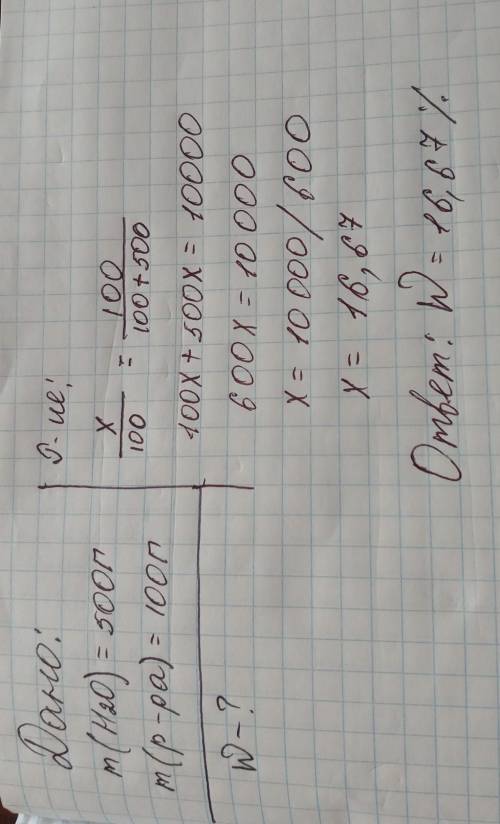 Дано:
m(H₂O) = 500г
m(р-ра) = 100г
W - ?
Р-ие:
x/100 = 100/100+500
100x + 500x = 10000
600x = 10 000
x = 10 000 / 600
x = 16,67
Ответ: W = 16,67 %